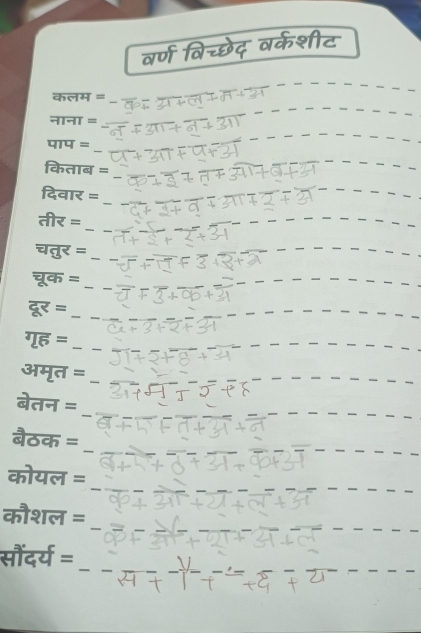 वर्ण विच्छेद वर्कशीट
कलम = क्+अ+ल्+म+अ
नाना = न्+आ+न्+आ
पाप = प+आ+प्+अ
किताब = क्+इ+त्+आ+ब+अ
दिवार = द्+इ+व्+आ+र्+अ
तीर = त+ई+र्+अ
चतुर = च्+त्+उ+र+अ
चूक = च्+उ+क्+अ
दूर = द+उ+र+अ
गृह = ग्+र+ह+अ
अमृत = अ+म्+र्+ह
बेतन = ब्+ए+त्+अ+न्
बैठक = ब्+ऐ+ठ्+अ+क्+अ
कोयल = क्+ओ+य+ल्+अ
कौशल = क्+औ+श+अ+ल्
सौंदर्य = स+ौ+ं+द्+य